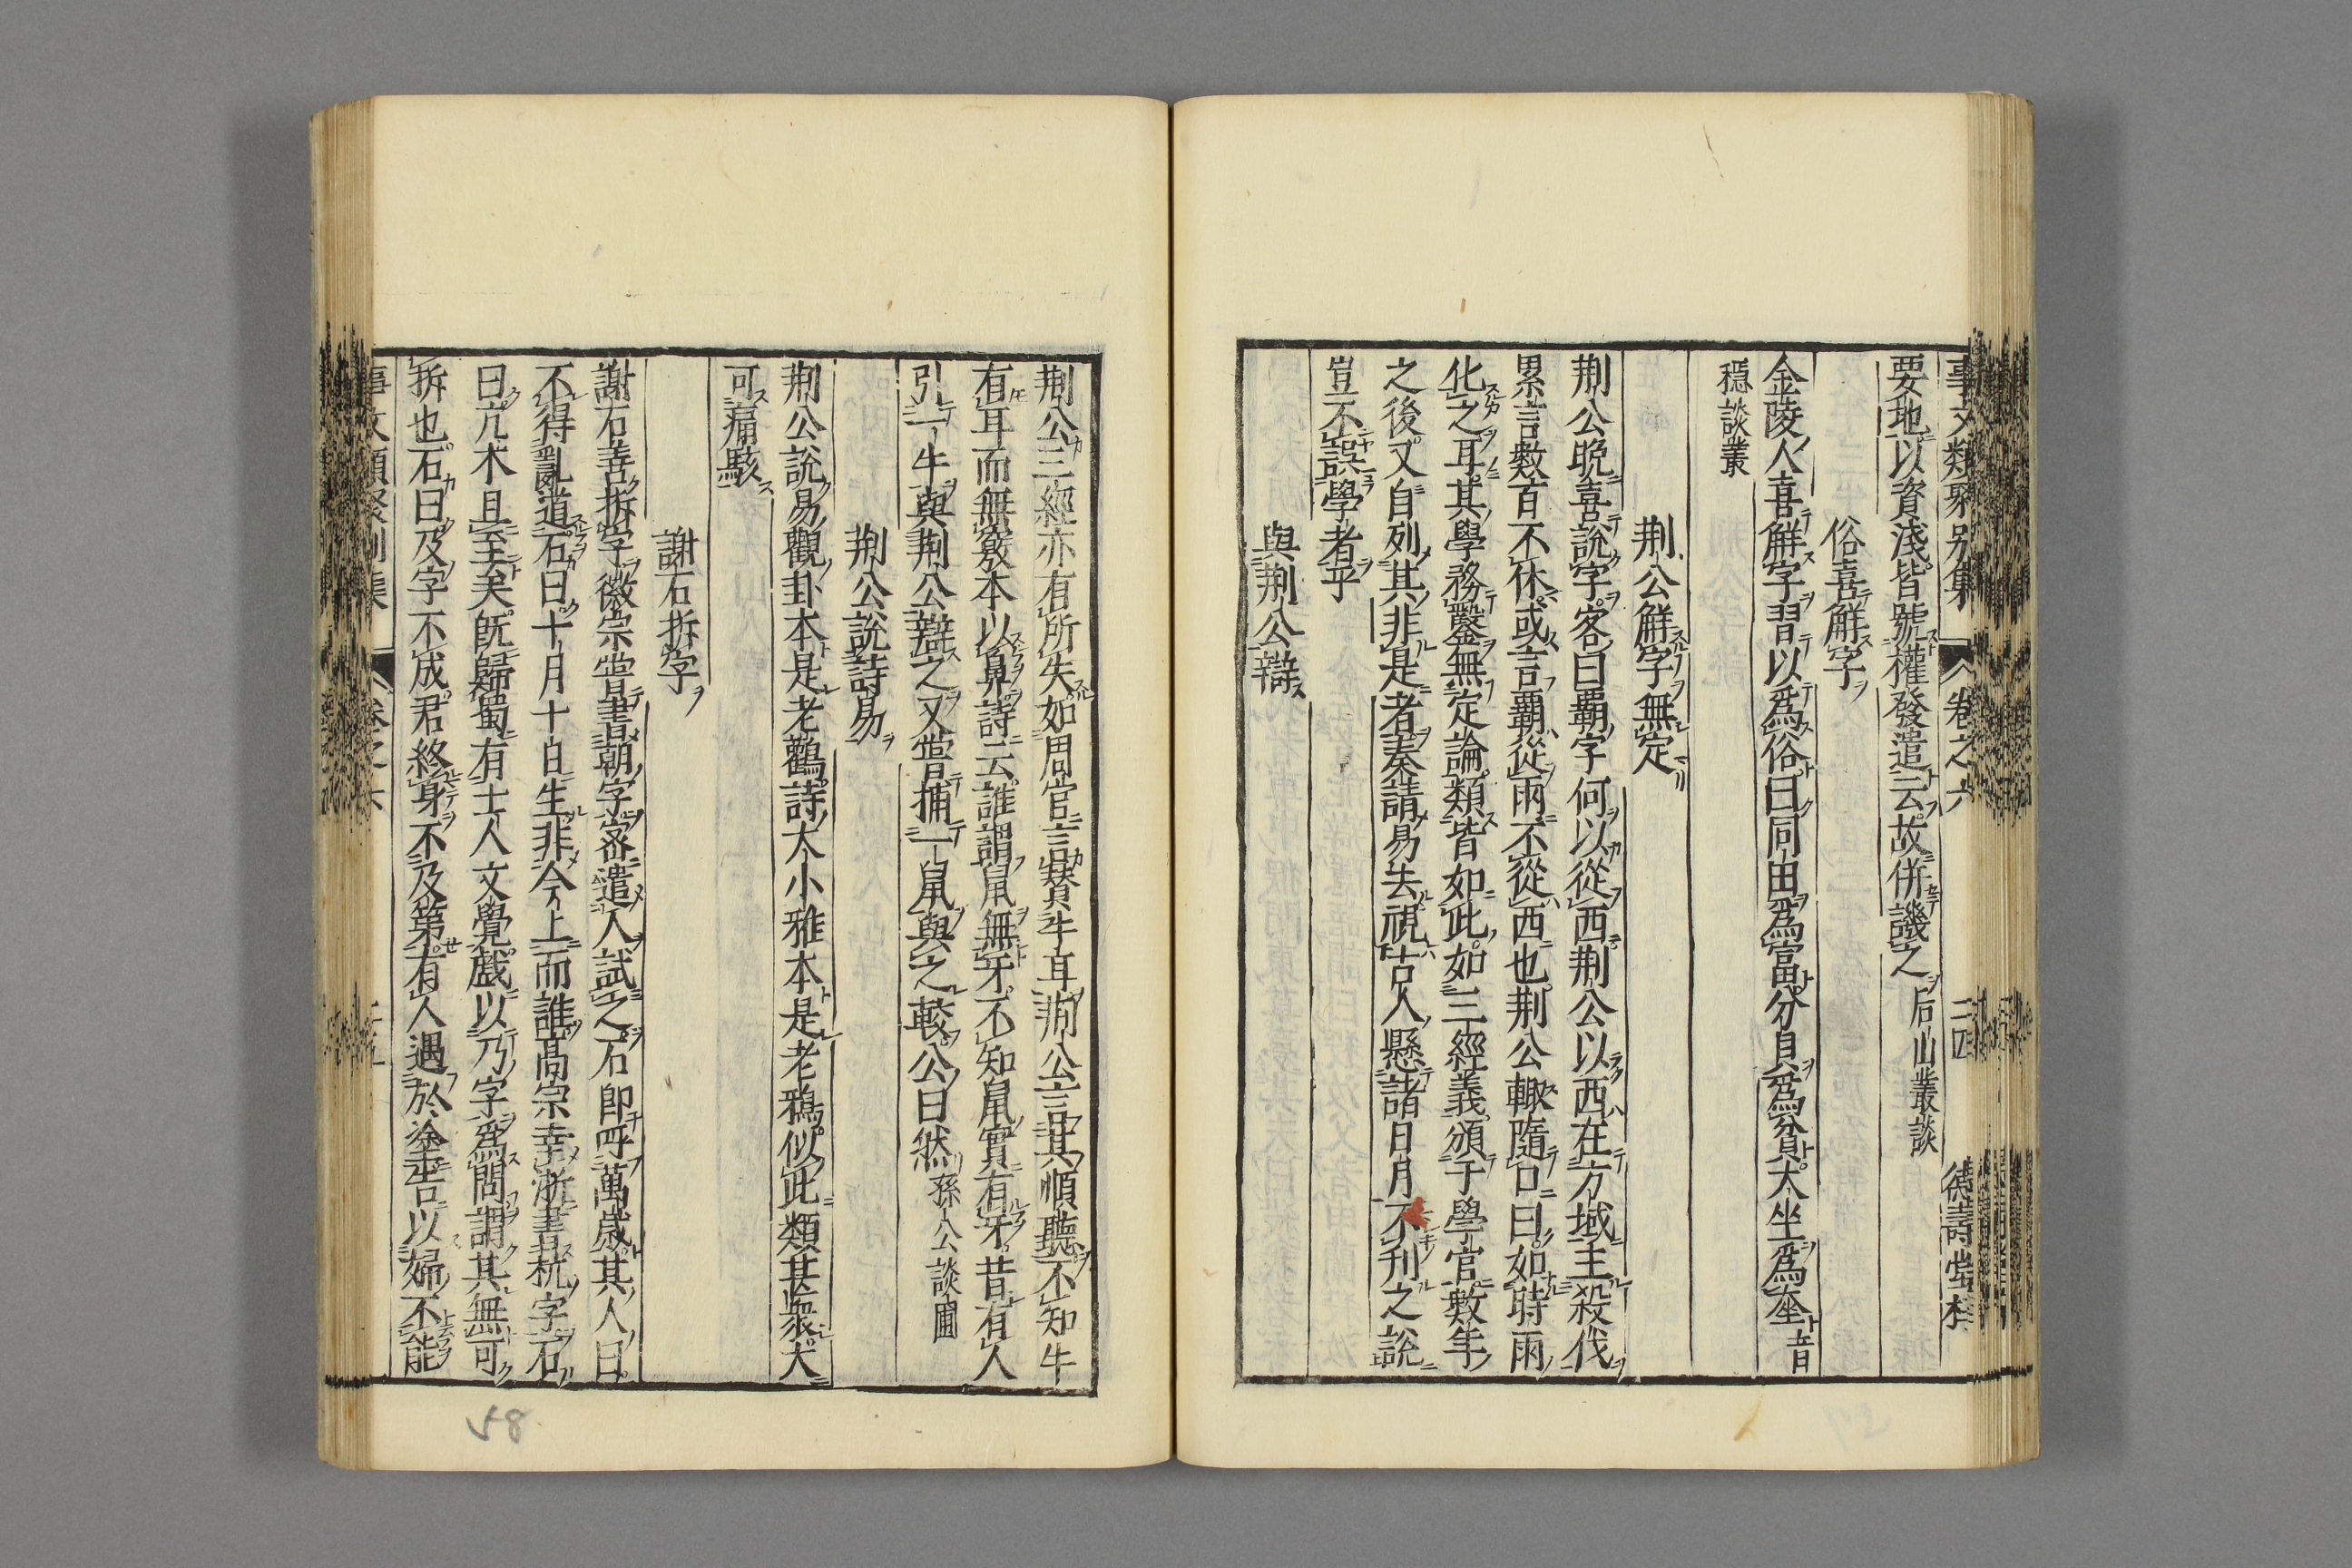 事文類聚別集 卷之六 二四 德壽堂梓
要地以資淺皆號權發遣云故併譏之 后山叢談
俗喜解字
金陵人喜解字習以爲俗曰同田爲富分貝爲貧大坐爲㚞 音
穩談叢
荆公解字無定
荆公晚喜說字客曰覇字何以從西荆公以西在方域主殺伐
累言數百不休或言覇從雨不從西也荆公輙隨口曰如時雨
化之耳其學務鑿無定論類皆如此如三經義頒于學官數年
之後又自列其非是者奏請易去視古人懸諸日月不刋之說
豈不誤學者乎
與荆公辯
荆公三經亦有所失如周官言贊牛耳荆公言其順聽不知牛
有耳而無竅本以鼻詩云誰謂鼠無牙不知鼠實有牙昔有人
引一牛與荆公辯之又嘗捕一鼠與之較公曰然 孫公談圃
荆公說詩易
荆公說易觀卦本是老鸛詩大小雅本是老鴉似此類甚衆大
可痛駭
謝石拆字
謝石善拆字徽宗嘗書朝字密遣人試之石即呼萬歲其人曰
不得亂道石曰十月十日生非今上而誰高宗幸浙書杭字石
曰亢木且至矣既歸蜀有士人文覺戲以乃字爲問謂其無可
拆也石曰及字不成君終身不及第有人遇於塗告以婦不能
事文類聚別集 卷之六